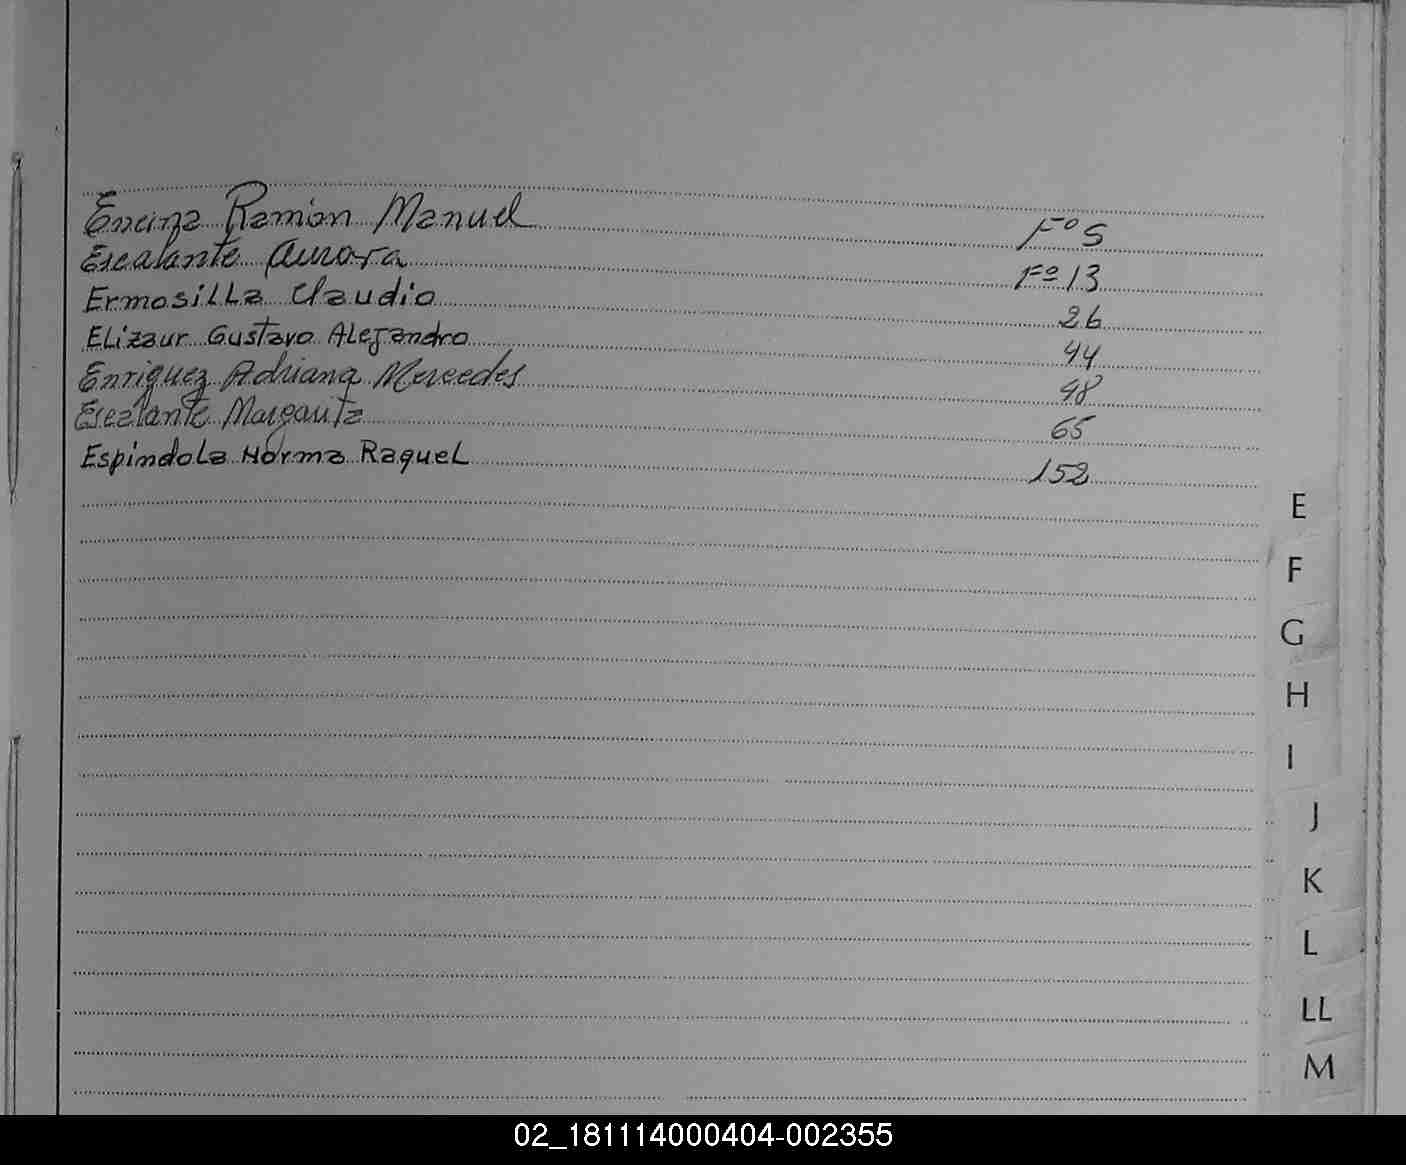 Encina Ramion Manuel Fº 5
Escalante Aurora Fº 13
Ermosilla Claudio 26
Elizaur Gustavo Alejandro 44
Enriquez Adriana Mercedes 48
Escalante Margarita 65
Espindola Norma Raquel 152
E
F
G
H
I
J
K
L
LL
M
02_181114000404-002355